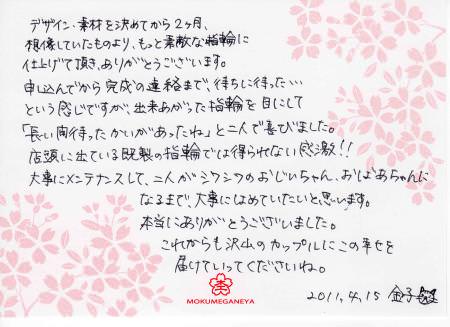 デザイン・素材を決めてから2ヶ月、
想像していたものより、もっと素敵な指輪に
仕上げて頂き、ありがとうございます。
申込んでから完成の連絡まで、待ちに待った…
という感じですが、出来あがった指輪を目にして
「長い間待ったかいがあったね」と二人で喜びました。
店頭に出ている既製の指輪では得られない感激!!
大事にメンテナンスして、二人がシワシワのおじいちゃん、おばあちゃんに
なるまで、大事にはめていたいと思います。
本当にありがとうございました。
これからも沢山のカップルにこの幸せを
届けていってくださいね。
MOKUMEGANEYA
2011.4.15 金子